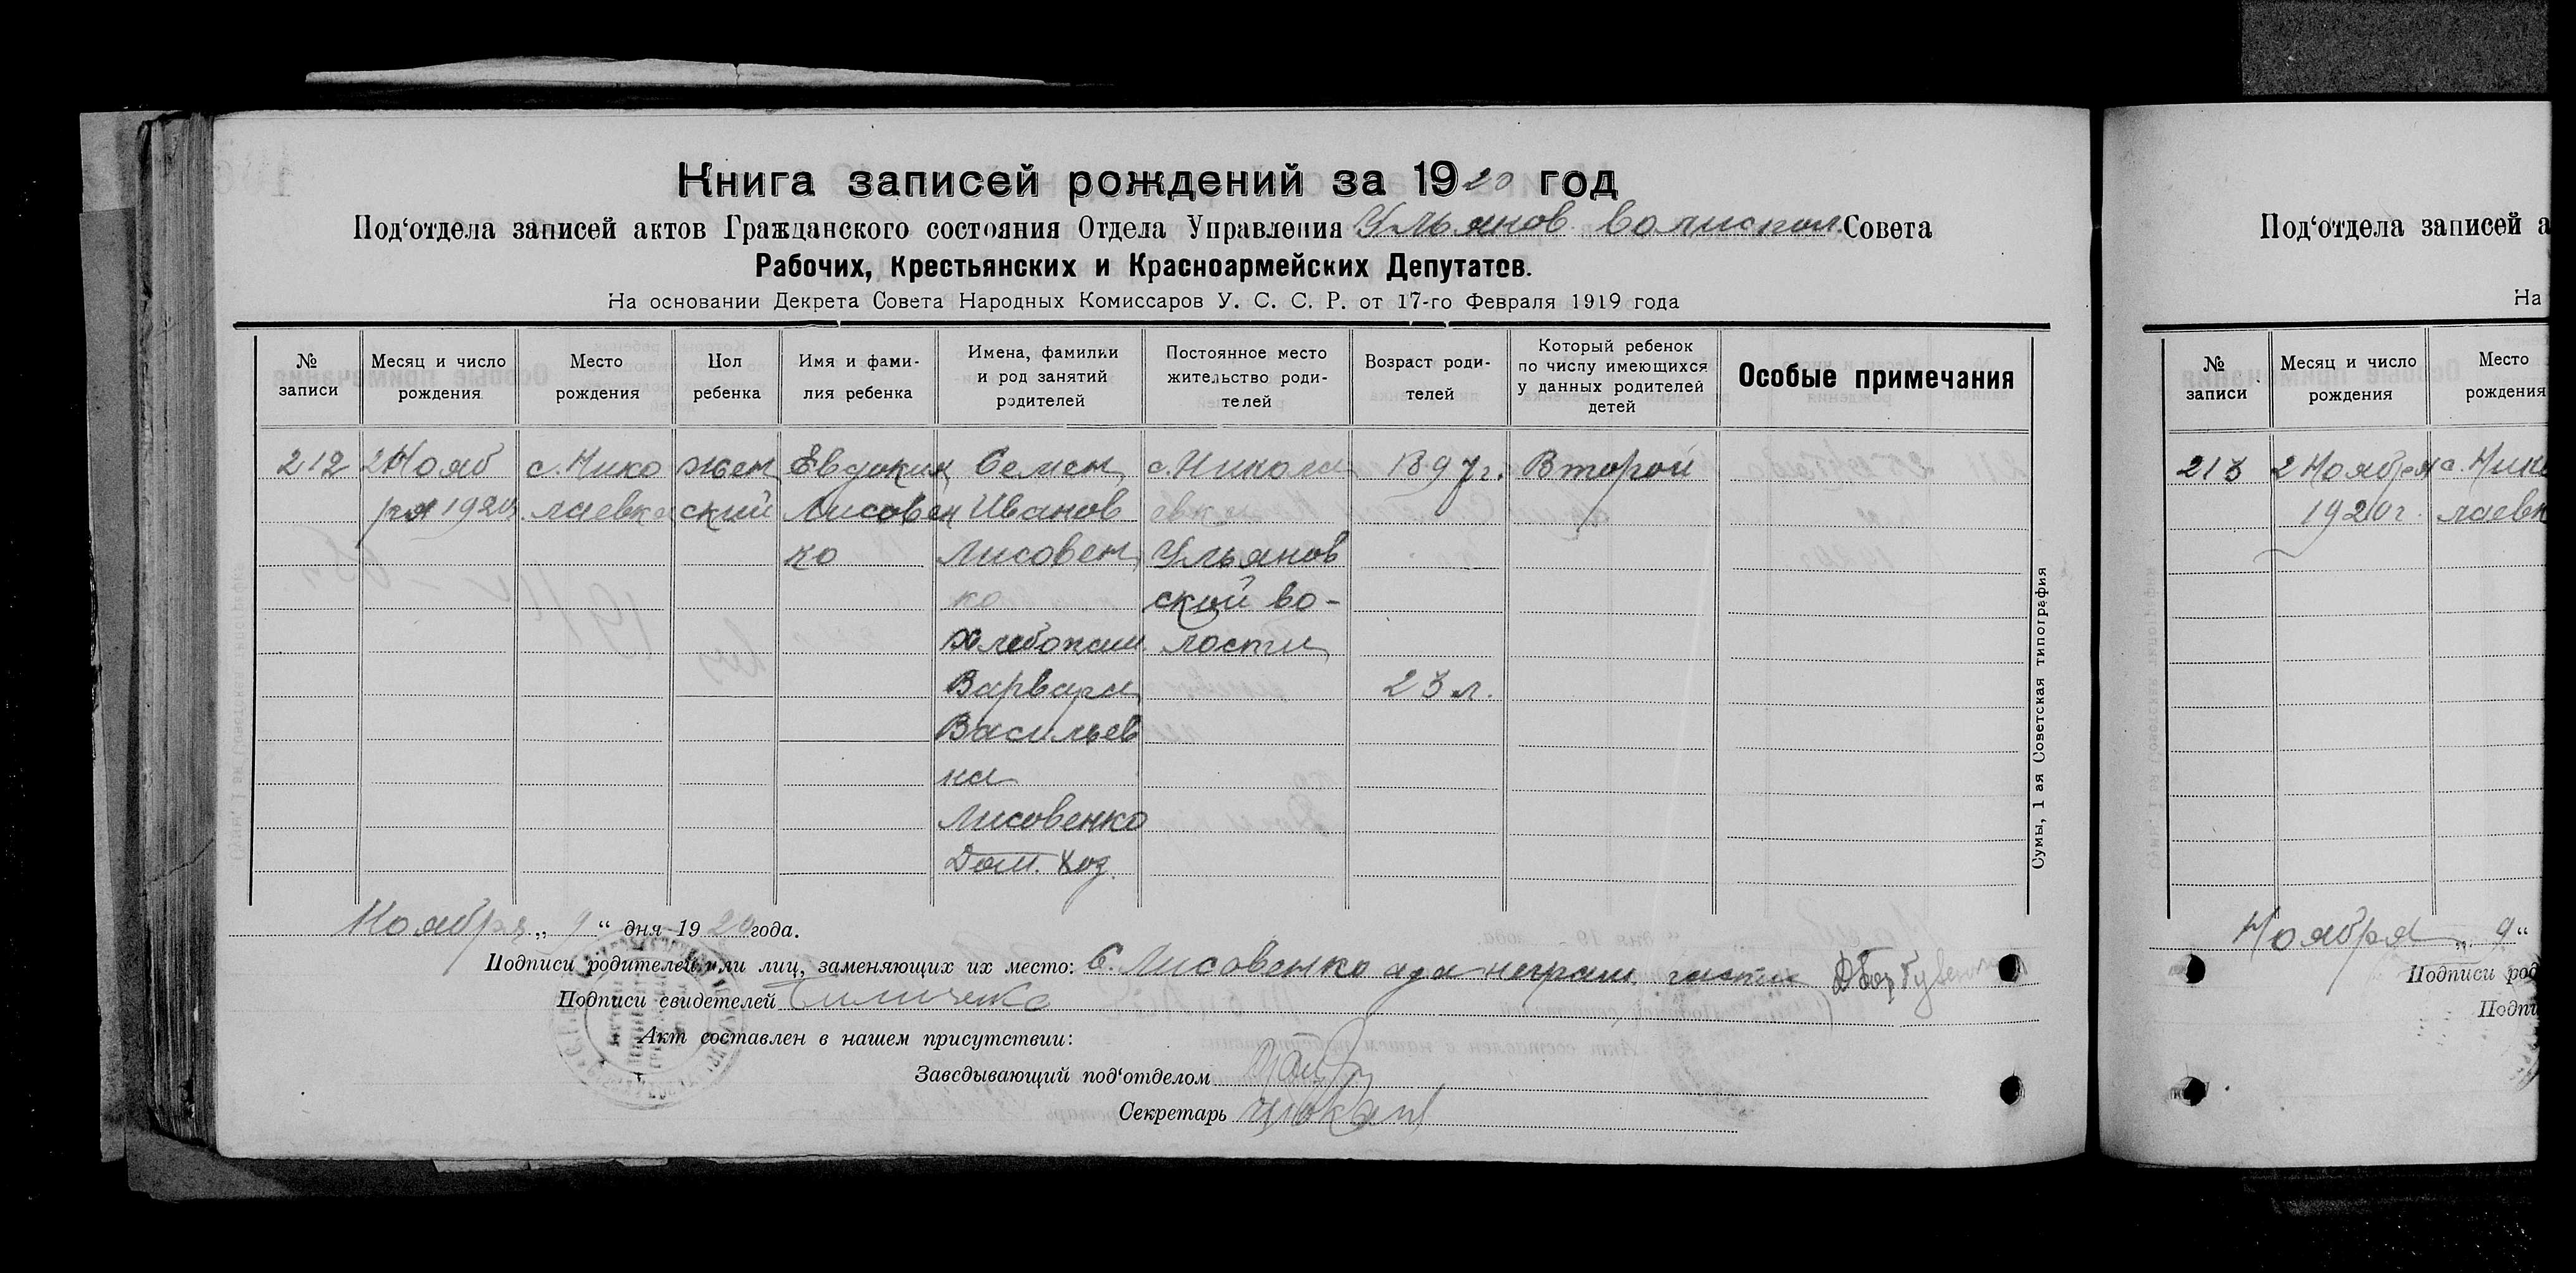 Книга записей рождений за 1920 год
Под‘отдела записей актов Гражданского состояния Отдела Управления Ульянов. волиспол. Совета
Рабочих, Крестьянских и Красноармейских Депутатов.
На основании Декрета Совета Народных Комиссаров У. С. С. Р. от 17-го Февраля 1919 года
№ записи
Месяц и число рождения
Место рождения
Пол ребенка
Имя и фамилия ребенка
Имена, фамилии и род занятий родителей
Постоянное место жительство родителей
Возраст родителей
Который ребенок по числу имеющихся у данных родителей детей
Особые примечания
212 2 Нояб с. Нико жен Евдокия Семен с. Никола 1897 г. Второй
ря 1920 лаевка ский Лисовен Иванов евки
ко Лисовен Ульянов
ко ской во-
Хлебопаш. лости
Варвара 23 л.
Васильев
на
Лисовенко
Дом. хоз.
Ноября „ 9 “ дня 1920 года.
Подписи родителей или лиц, заменяющих их место: С. Лисовенко а за неграм.
Подписи свидетелей
Акт составлен в нашем присутствии:
Заведывающий под‘отделом
Секретарь
Сумы, 1 ая Советская типография
Под‘отдела записей а
На
№ записи
Месяц и число рождения
Место рождения
213 2 Ноября с. Нико
1920 г. лаевк
Ноября „ 9 “
Подписи род
Подпи